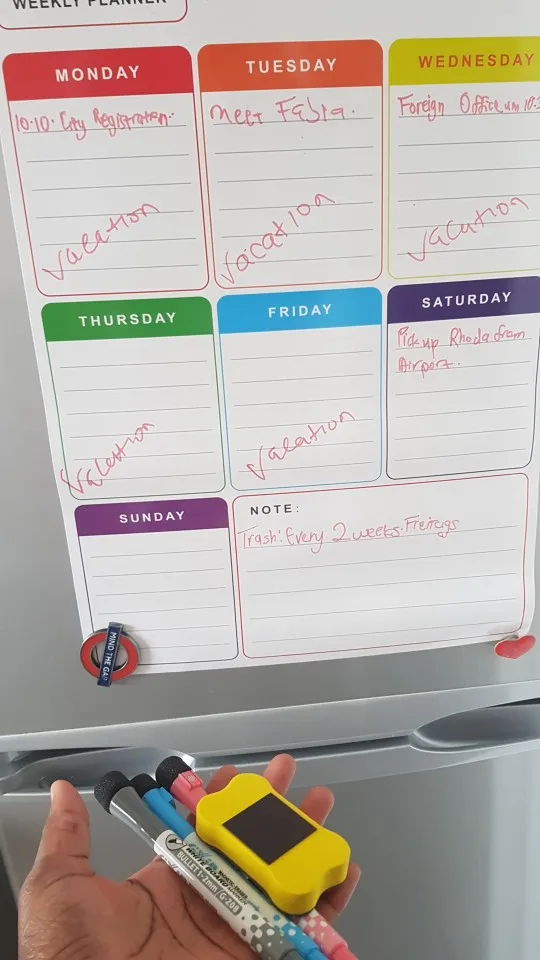 WEEKLY PLANNER
MONDAY
10.10. City Registration.
Vacation
TUESDAY
Meet Fabia.
Vacation
WEDNESDAY
Foreign Office um 10:3
Vacation
THURSDAY
Vacation
FRIDAY
Vacation
SATURDAY
Pick up Rhoda from
Airport.
SUNDAY
NOTE:
Trash: Every 2 weeks. Freitags
MIND THE GAP
WHITE BOARD
BULLET 1-2mm/G-208